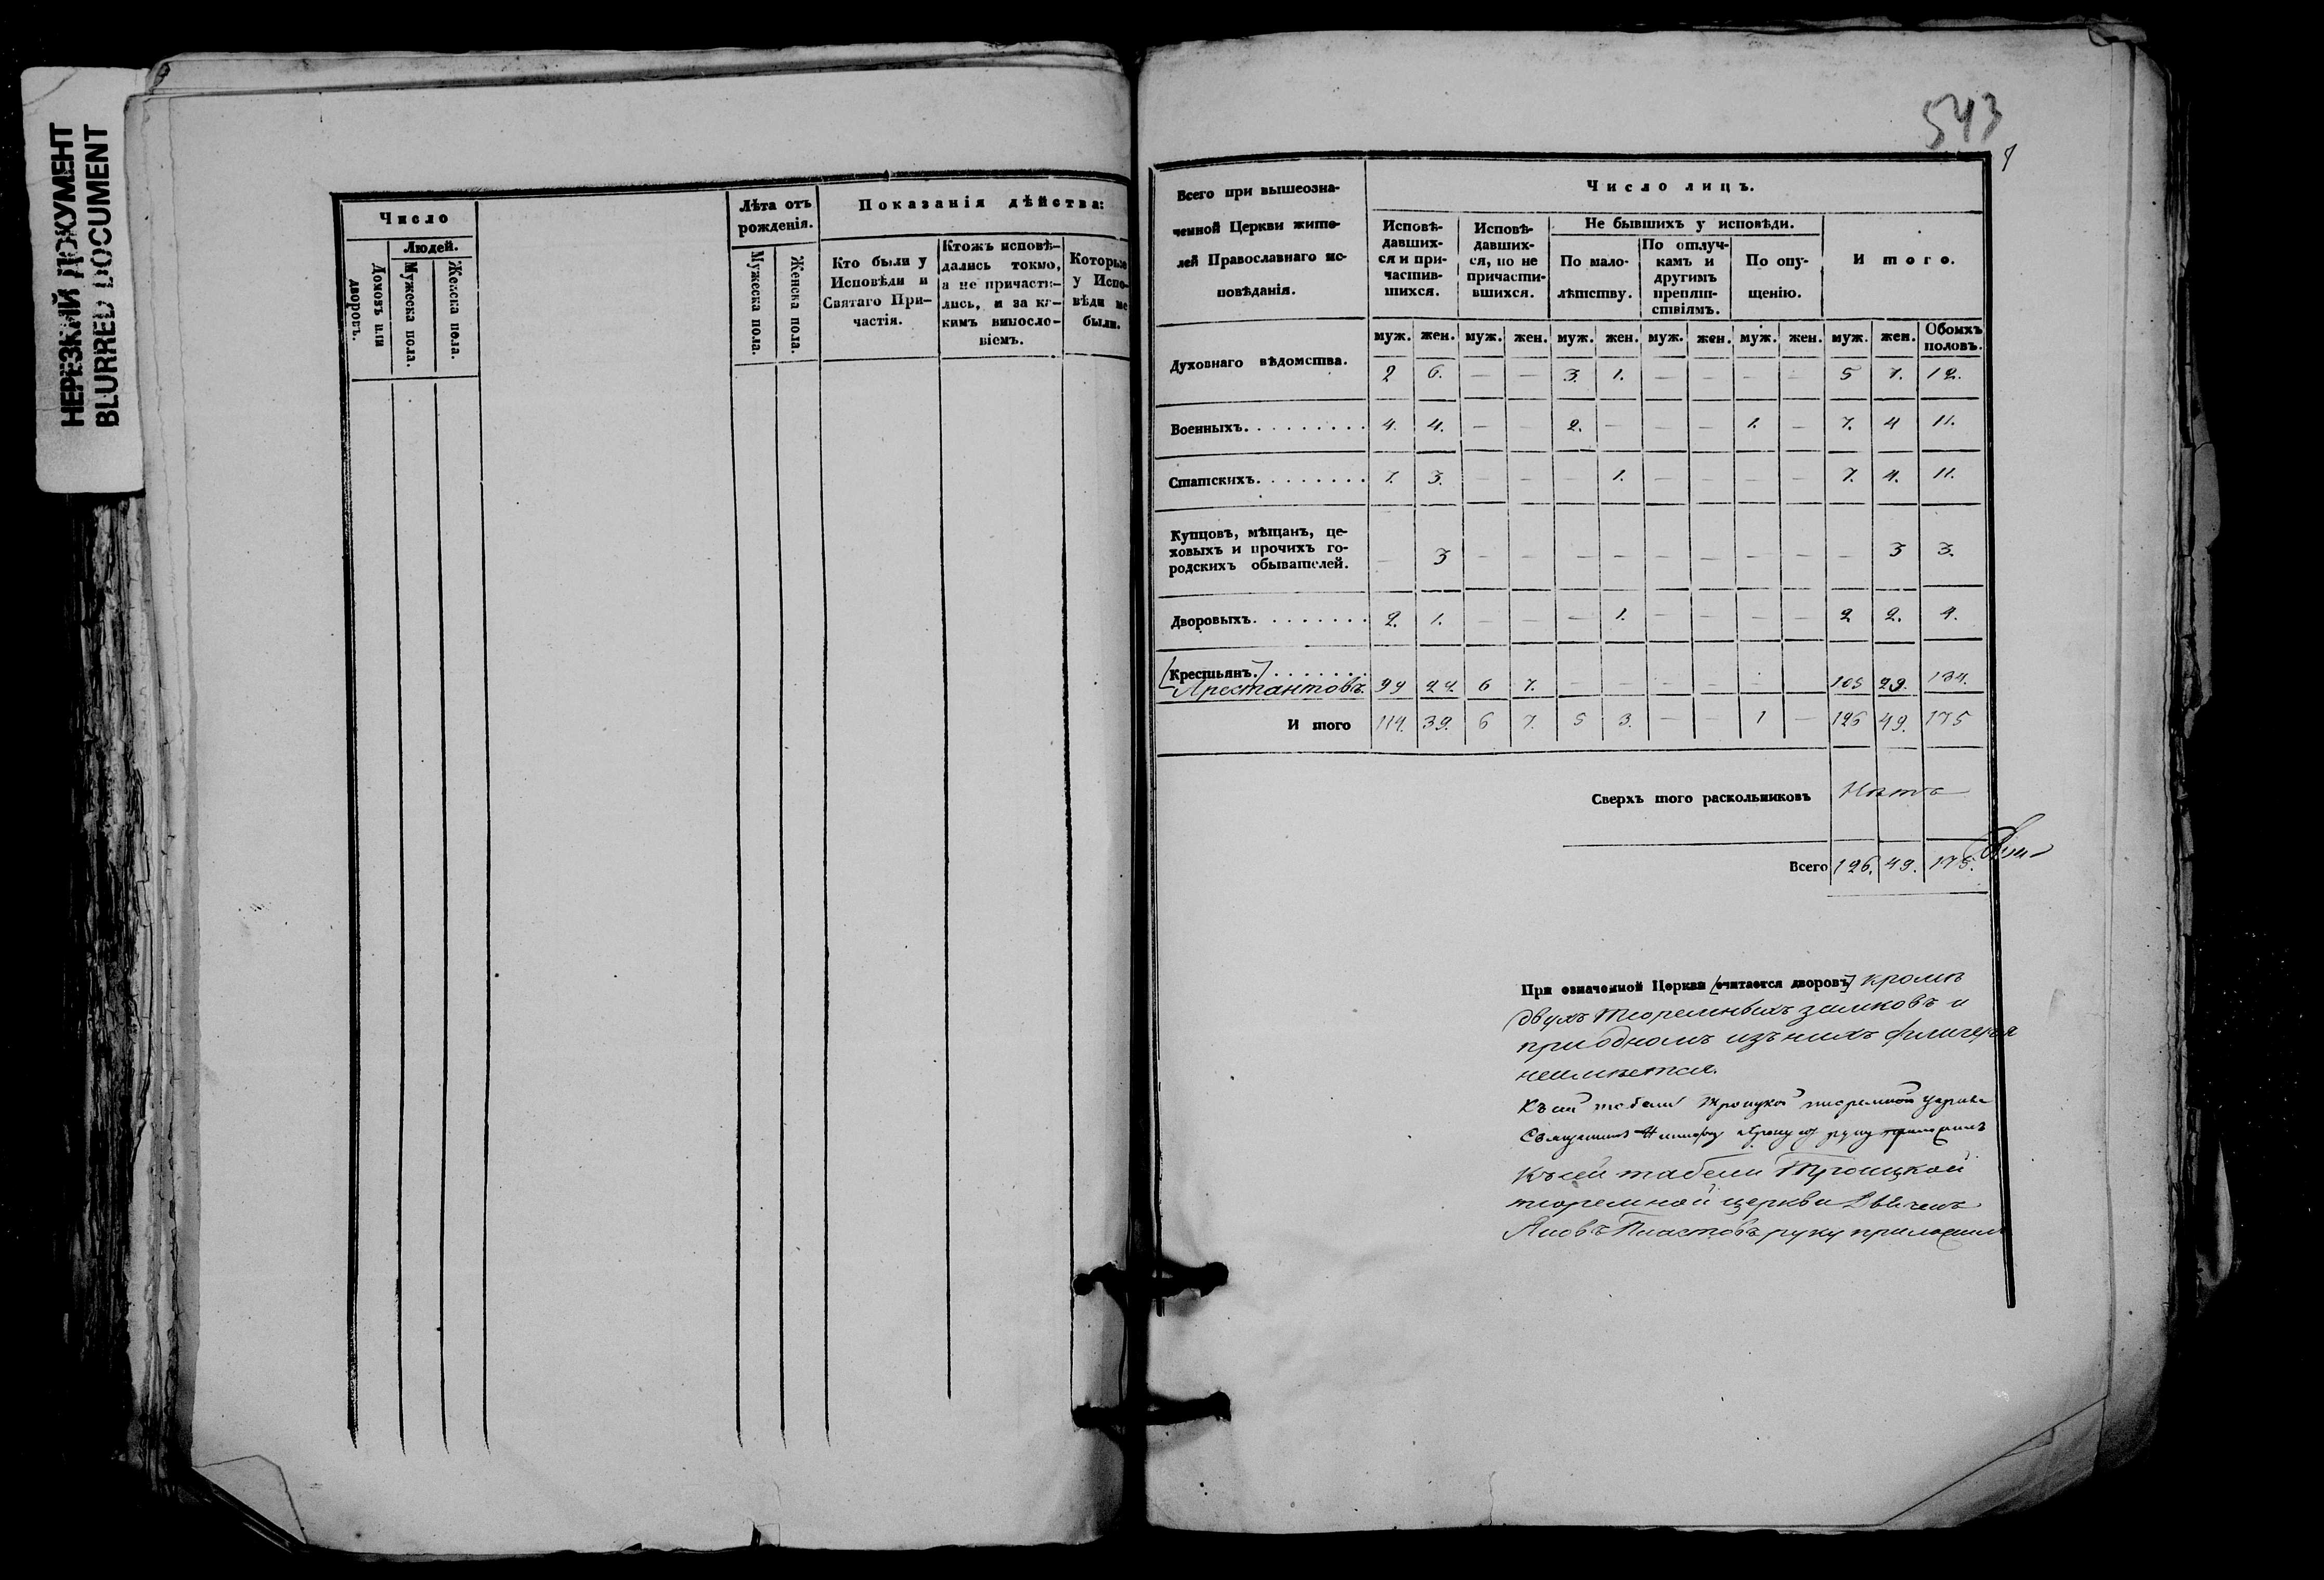 НЕРЕЗКИЙ ДОКУМЕНТ
BLURRED DOCUMENT
Число
Людей.
Домовъ или дворовъ.
Мужеска пола.
Женска пола.
Лѣта отъ
рожденія.
Мужеска пола.
Женска пола.
Показанія дѣйства:
Кто были у
Исповѣди и
Святаго При-
частія.
Ктожъ исповѣ-
дались токмо,
а не причасти-
лись, и за ка-
кимъ винословіемъ.
Которые
у Испо-
вѣди не
были.
543
Всего при вышеозна-
ченной Церкви жите-
лей Православнаго ис-
повѣданія.
Число лицъ.
Исповѣ-
давших-
ся и при-
частив-
шихся.
Исповѣ-
давших-
ся, но не
причасти-
вшихся.
Не бывшихъ у исповѣди.
По мало-
лѣтству.
По отлуч-
камъ и
другимъ
препят-
ствіямъ.
По опу-
щенію.
Итого.
муж. жен. муж. жен. муж. жен. муж. жен. муж. жен. муж. жен. Обоихъ половъ.
Духовнаго вѣдомства. 2 6. — — 3. 1. — — — — 5 7. 12.
Военныхъ. 4. 4. — — 2. — — — 1. — 7. 4 11.
Статскихъ. 7. 3. — — — 1. — — — — 7. 4. 11.
Купцовъ, мѣщанъ, це-
ховыхъ и прочихъ го-
родскихъ обывателей. — 3 — — — — — — — — — 3 3.
Дворовыхъ. 2. 1. — — — 1. — — — — 2 2. 4.
[Крестьянъ.]
Арестантовъ. 99 22 6 7. — — — — — 105 29. 134.
И того 114. 39. 6 7. 5 3. — — 1 — 126 49. 175
Сверхъ того раскольниковъ Нѣтъ
Всего 126. 49. 175.
При означенной Церкви [считается дворовъ] кромѣ
двухъ тюремныхъ замковъ и
при одномъ изъ нихъ флигеря
неимѣется.
Къ сей табели Троицкой тюремной церкви
Священникъ руку приложилъ
Къ сей табели Троицкой
тюремной церкви
руку приложилъ